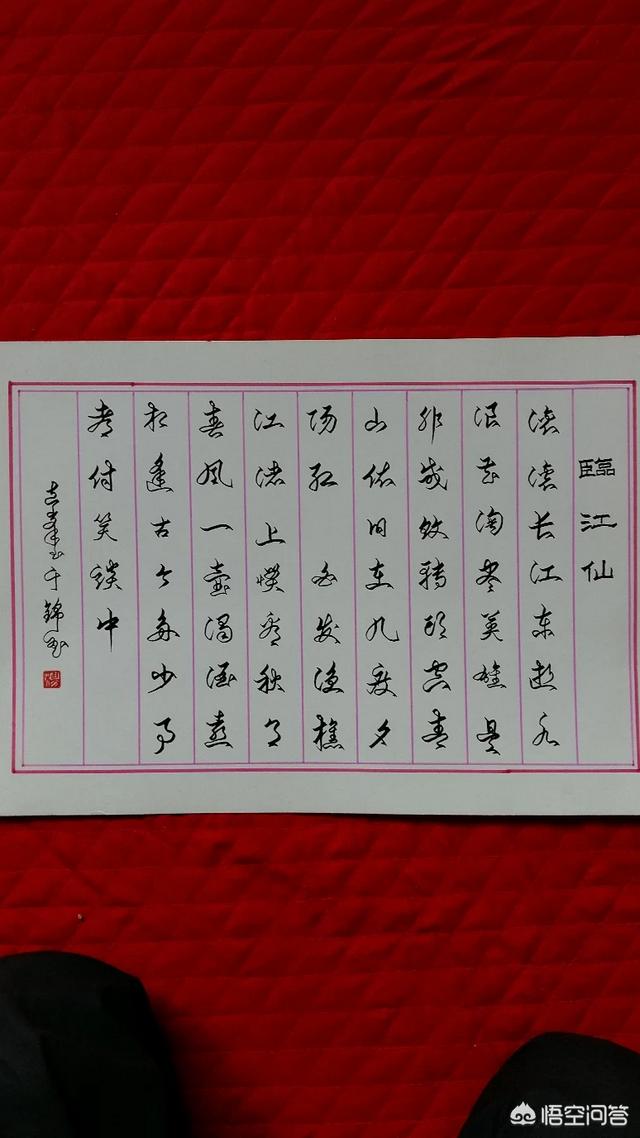 臨江仙
滚滚长江东逝水
浪花淘尽英雄是
非成败转头空青
山依旧在几度夕
阳红 白发渔樵
江渚上惯看秋月
春风一壶浊酒喜
相逢古今多少事
都付笑谈中
锦
悟空问答